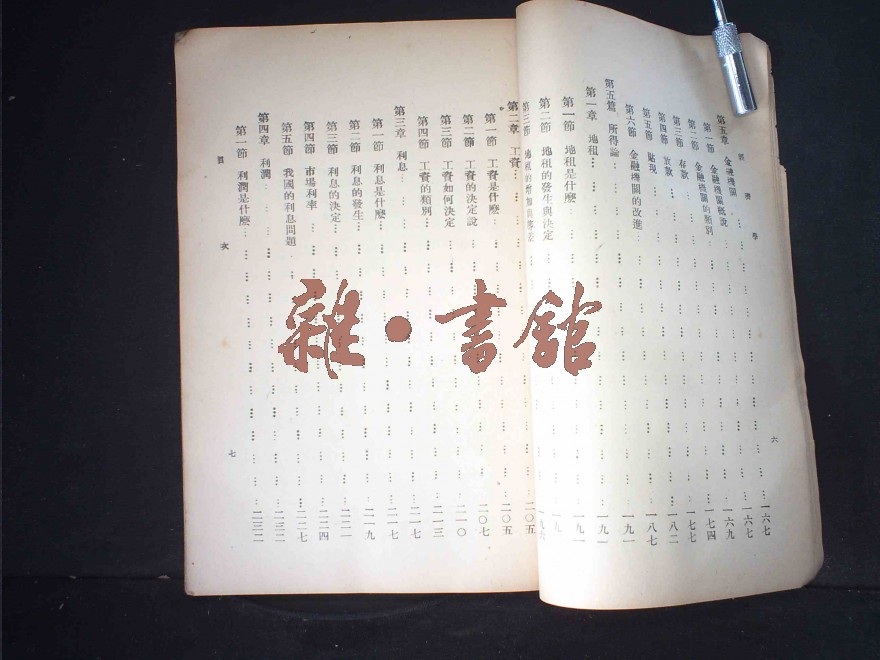 經濟學
六
第五章 金融機關……一六七
第一節 金融機關概說……一六七
第二節 金融機關的類別……一六九
第三節 存款……一七四
第四節 放款……一七七
第五節 貼現……一八二
第六節 金融機關的改進……一八七
第五篇 所得論……一九一
第一章 地租……一九一
第一節 地租是什麼……一九一
第二節 地租的發生與決定……一九
第三節 地租的增加與……一九
第二章 工資……二〇五
第一節 工資是什麼……二〇五
第二節 工資的決定說……二〇七
第三節 工資如何決定……二一〇
第四節 工資的類別……二一三
第三章 利息……二一七
第一節 利息是什麼……二一七
第二節 利息的發生……二一九
第三節 利息的決定……二二一
第四節 市場利率……二二四
第五節 我國的利息問題……二二七
第四章 利潤……二三二
第一節 利潤是什麼……二三二
目次
七
雜·書館